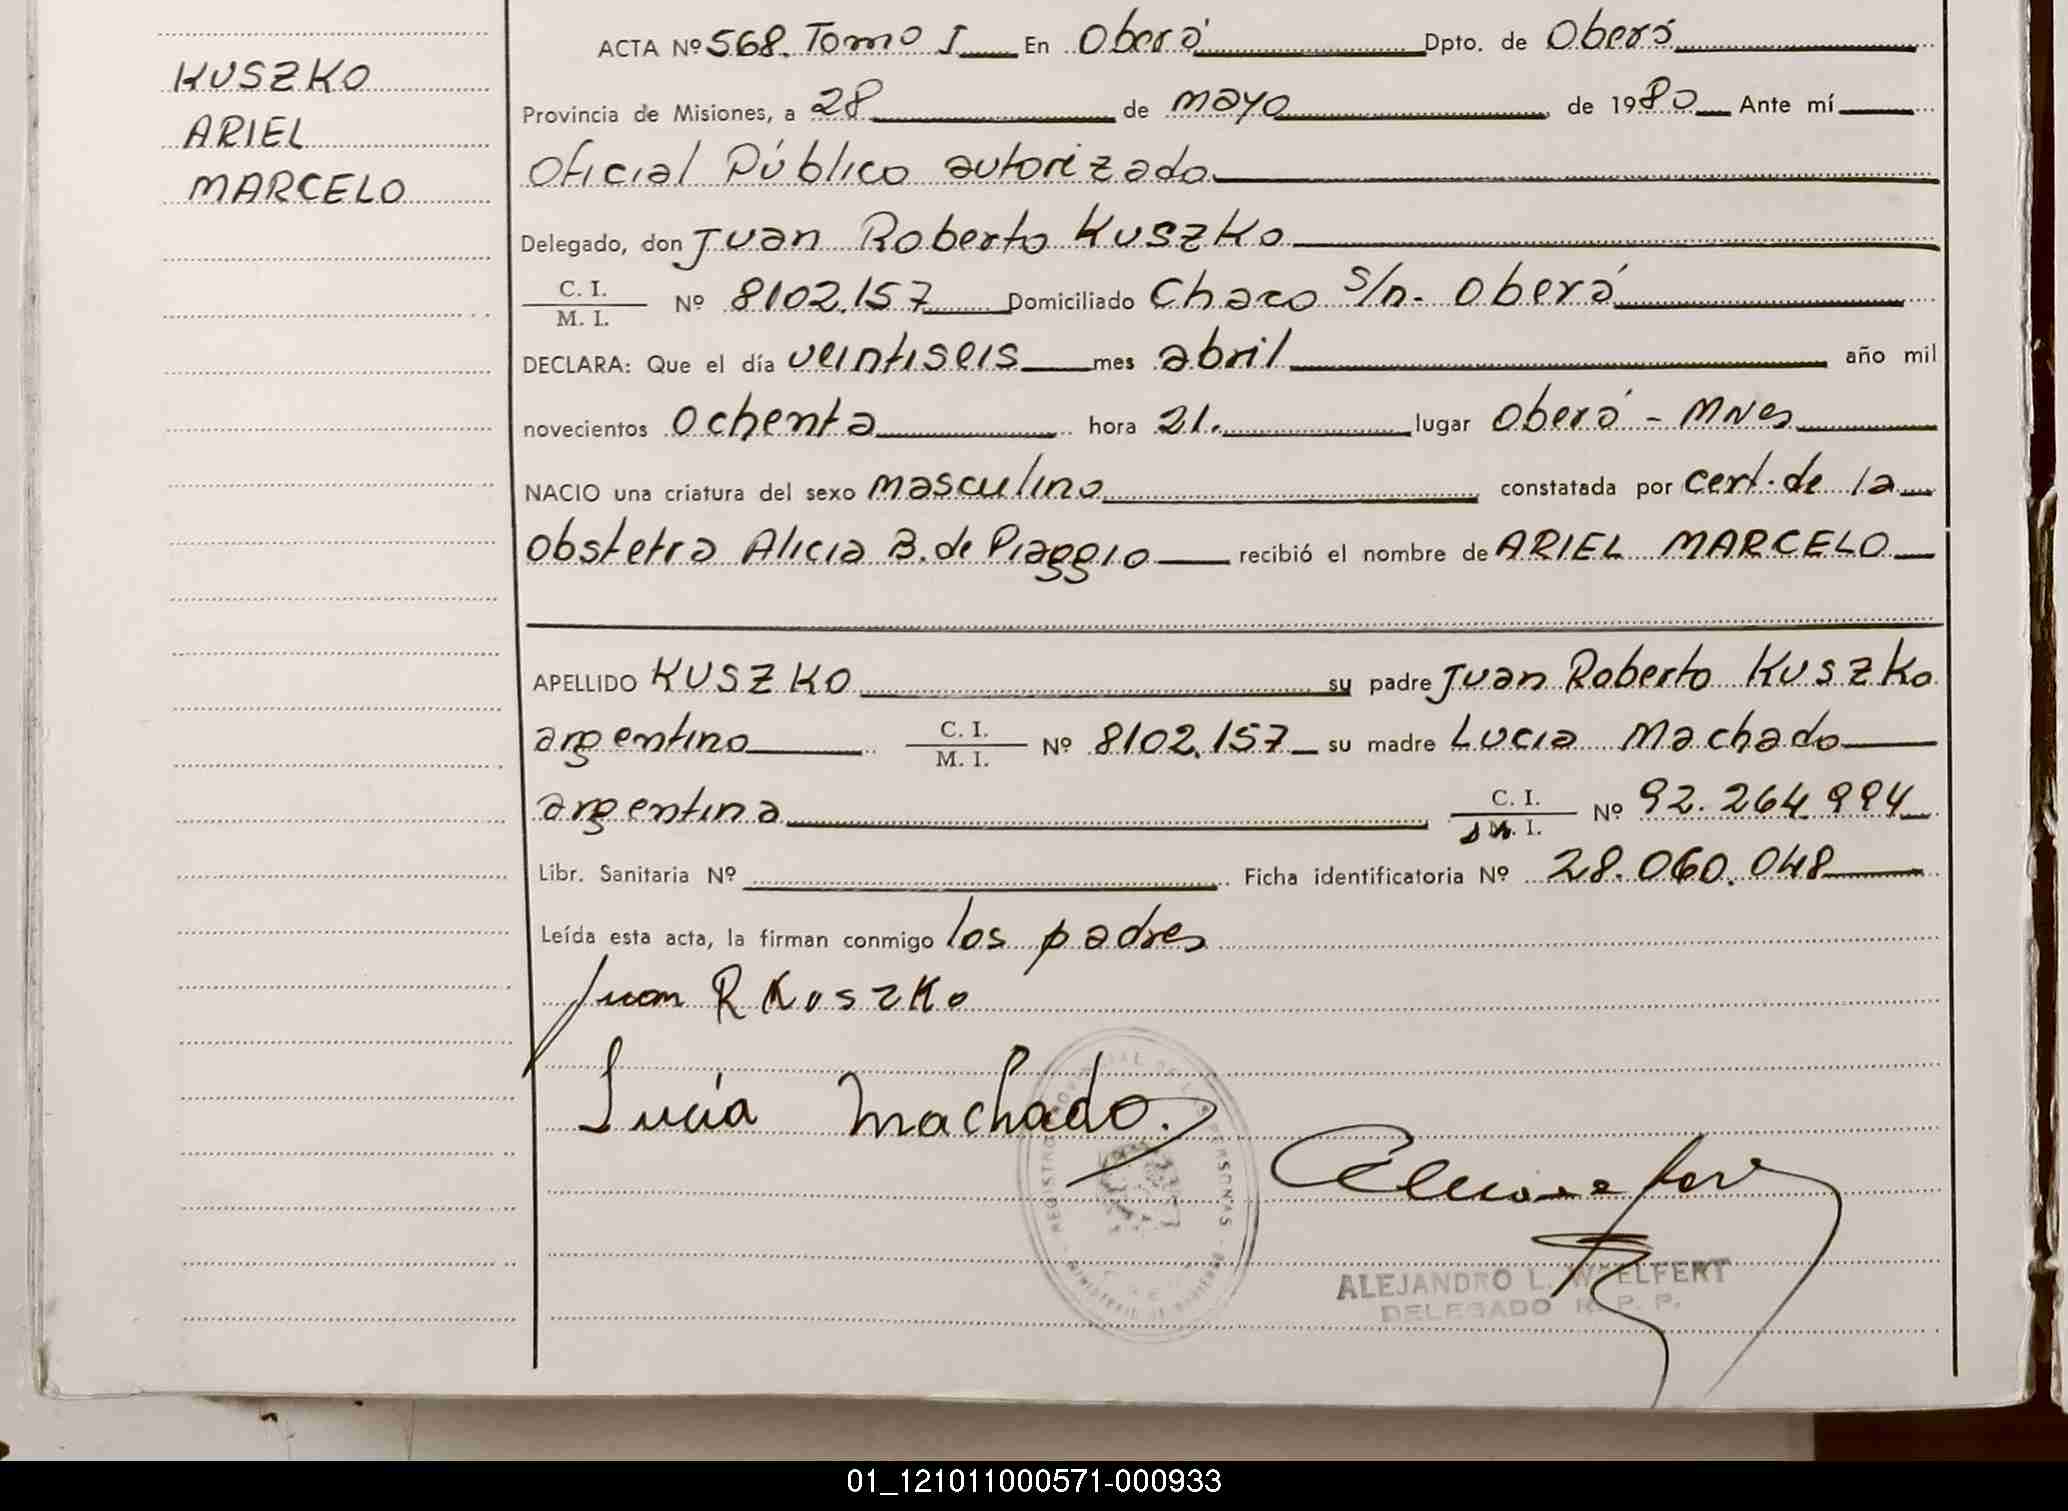 KUSZKO
ARIEL
MARCELO
ACTA Nº 568. Tomo I En Oberá Dpto. de Oberá
Provincia de Misiones, a 28 de mayo de 1980 Ante mí
Oficial Público autorizado
Delegado, don Juan Roberto Kuszko
C. I. / M. I. Nº 8102.157 Domiciliado Chaco s/n. Oberá
DECLARA: Que el día veintiseis mes abril año mil
novecientos ochenta hora 21. lugar Oberá - Mnes
NACIO una criatura del sexo masculino constatada por cert. de la
obstetra Alicia B. de Piaggio recibió el nombre de ARIEL MARCELO
APELLIDO KUSZKO su padre Juan Roberto Kuszko
argentino C. I. / M. I. Nº 8102.157 su madre Lucia Machado
argentina C. I. / M. I. Nº 92.264.994
Libr. Sanitaria Nº Ficha identificatoria Nº 28.060.048
Leída esta acta, la firman conmigo los padres
Juan R Kuszko
Lucía Machado.
REGISTRO PROVINCIAL DE LAS PERSONAS
ALEJANDRO L. WELFERT
DELEGADO R. P. P.
01_121011000571-000933